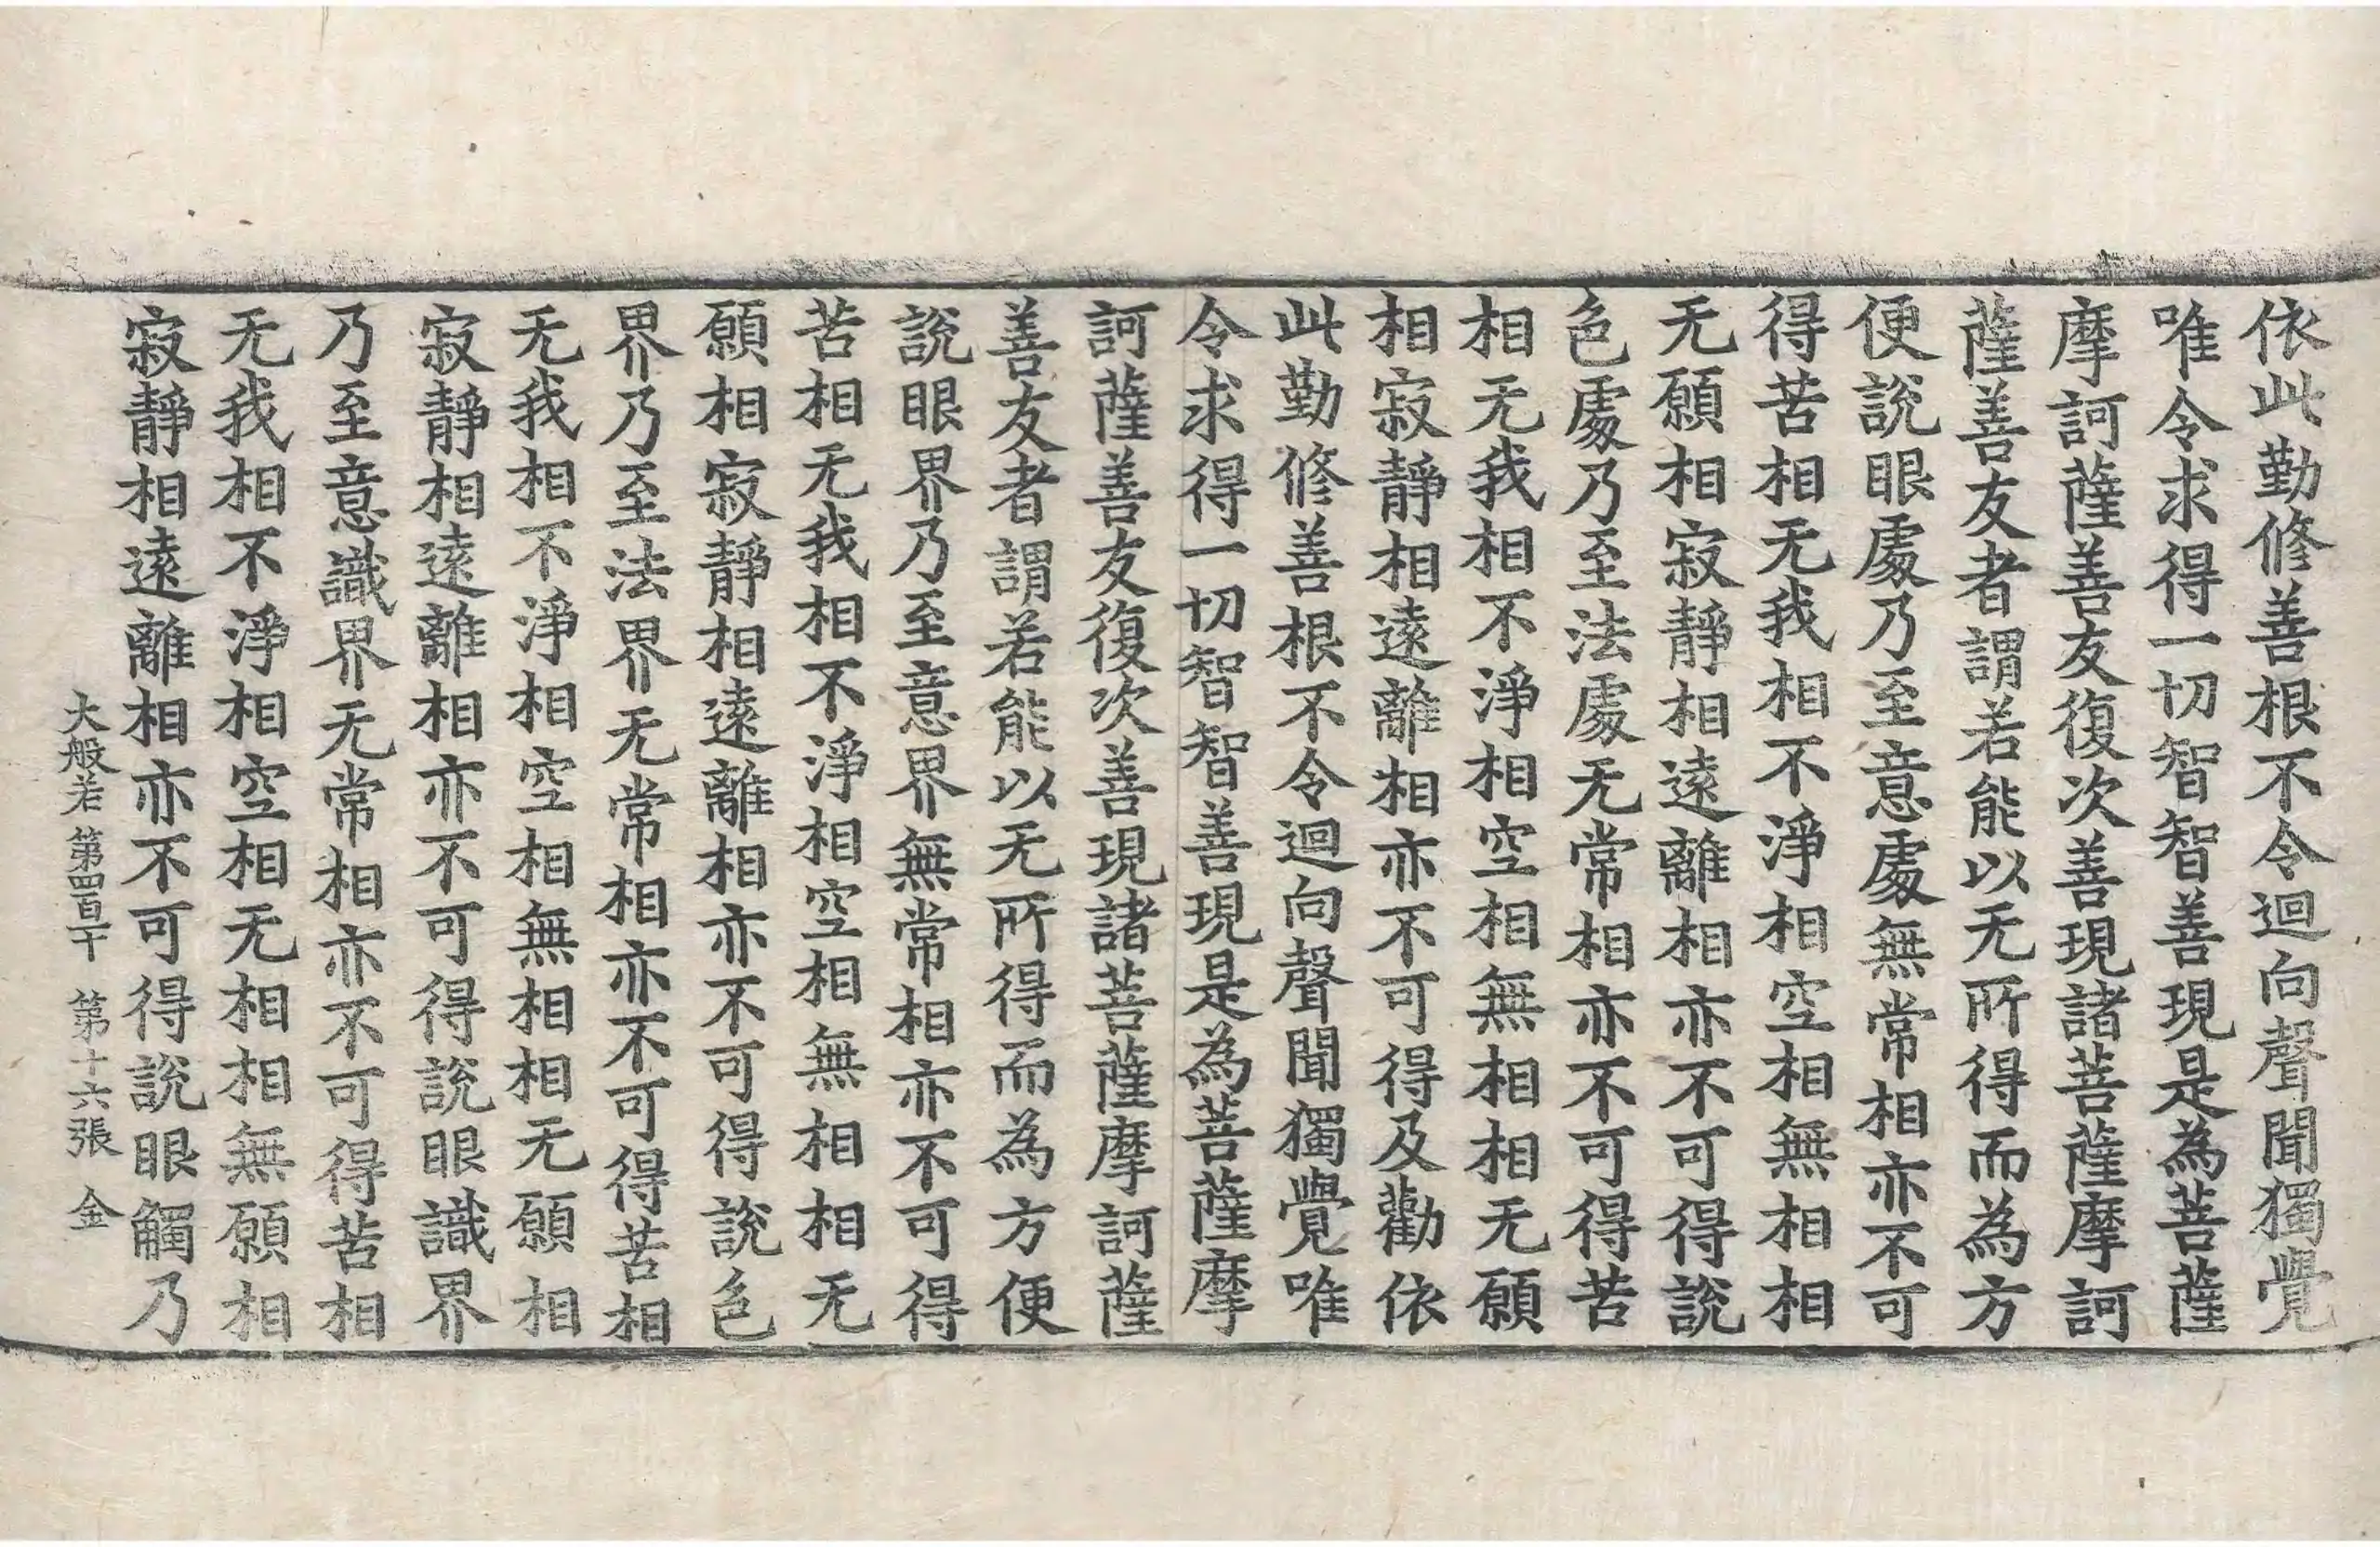 依此勤修善根不令迴向聲聞獨覺
唯令求得一切智智善現是為菩薩
摩訶薩善友復次善現諸菩薩摩訶
薩善友者謂若能以无所得而為方
便說眼處乃至意處無常相亦不可
得苦相无我相不淨相空相無相相
无願相寂靜相遠離相亦不可得說
色處乃至法處无常相亦不可得苦
相无我相不淨相空相無相相无願
相寂靜相遠離相亦不可得及勸依
此勤修善根不令迴向聲聞獨覺唯
令求得一切智智善現是為菩薩摩
訶薩善友復次善現諸菩薩摩訶薩
善友者謂若能以无所得而為方便
說眼界乃至意界無常相亦不可得
苦相无我相不淨相空相無相相无
願相寂靜相遠離相亦不可得說色
界乃至法界无常相亦不可得苦相
无我相不淨相空相無相相无願相
寂靜相遠離相亦不可得說眼識界
乃至意識界无常相亦不可得苦相
无我相不淨相空相无相相無願相
寂靜相遠離相亦不可得說眼觸乃
大般若 第四百十 第十六張 金